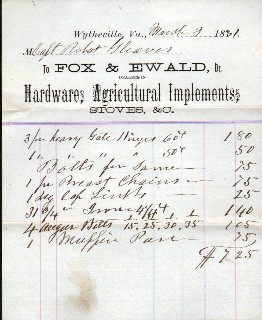 Wytheville, Va., March 9 1881.
M Capt Robt Cleaves
To FOX & EWALD, Dr.
DEALERS IN
Hardware, Agricultural Implements,
STOVES, &C.
3 pr Heavy Gate Hinges 60¢ 1 80
1 " " " " 50¢ 50
Bolts for Same 75
1 pr Breast Chains 75
1 doz Cap Links 25
31 3/4 " Iron 4 1/2¢ 1 40
4 Auger Bitts 15, 25, 30, 35 1 05
1 Muffin Pan 75
$7 25